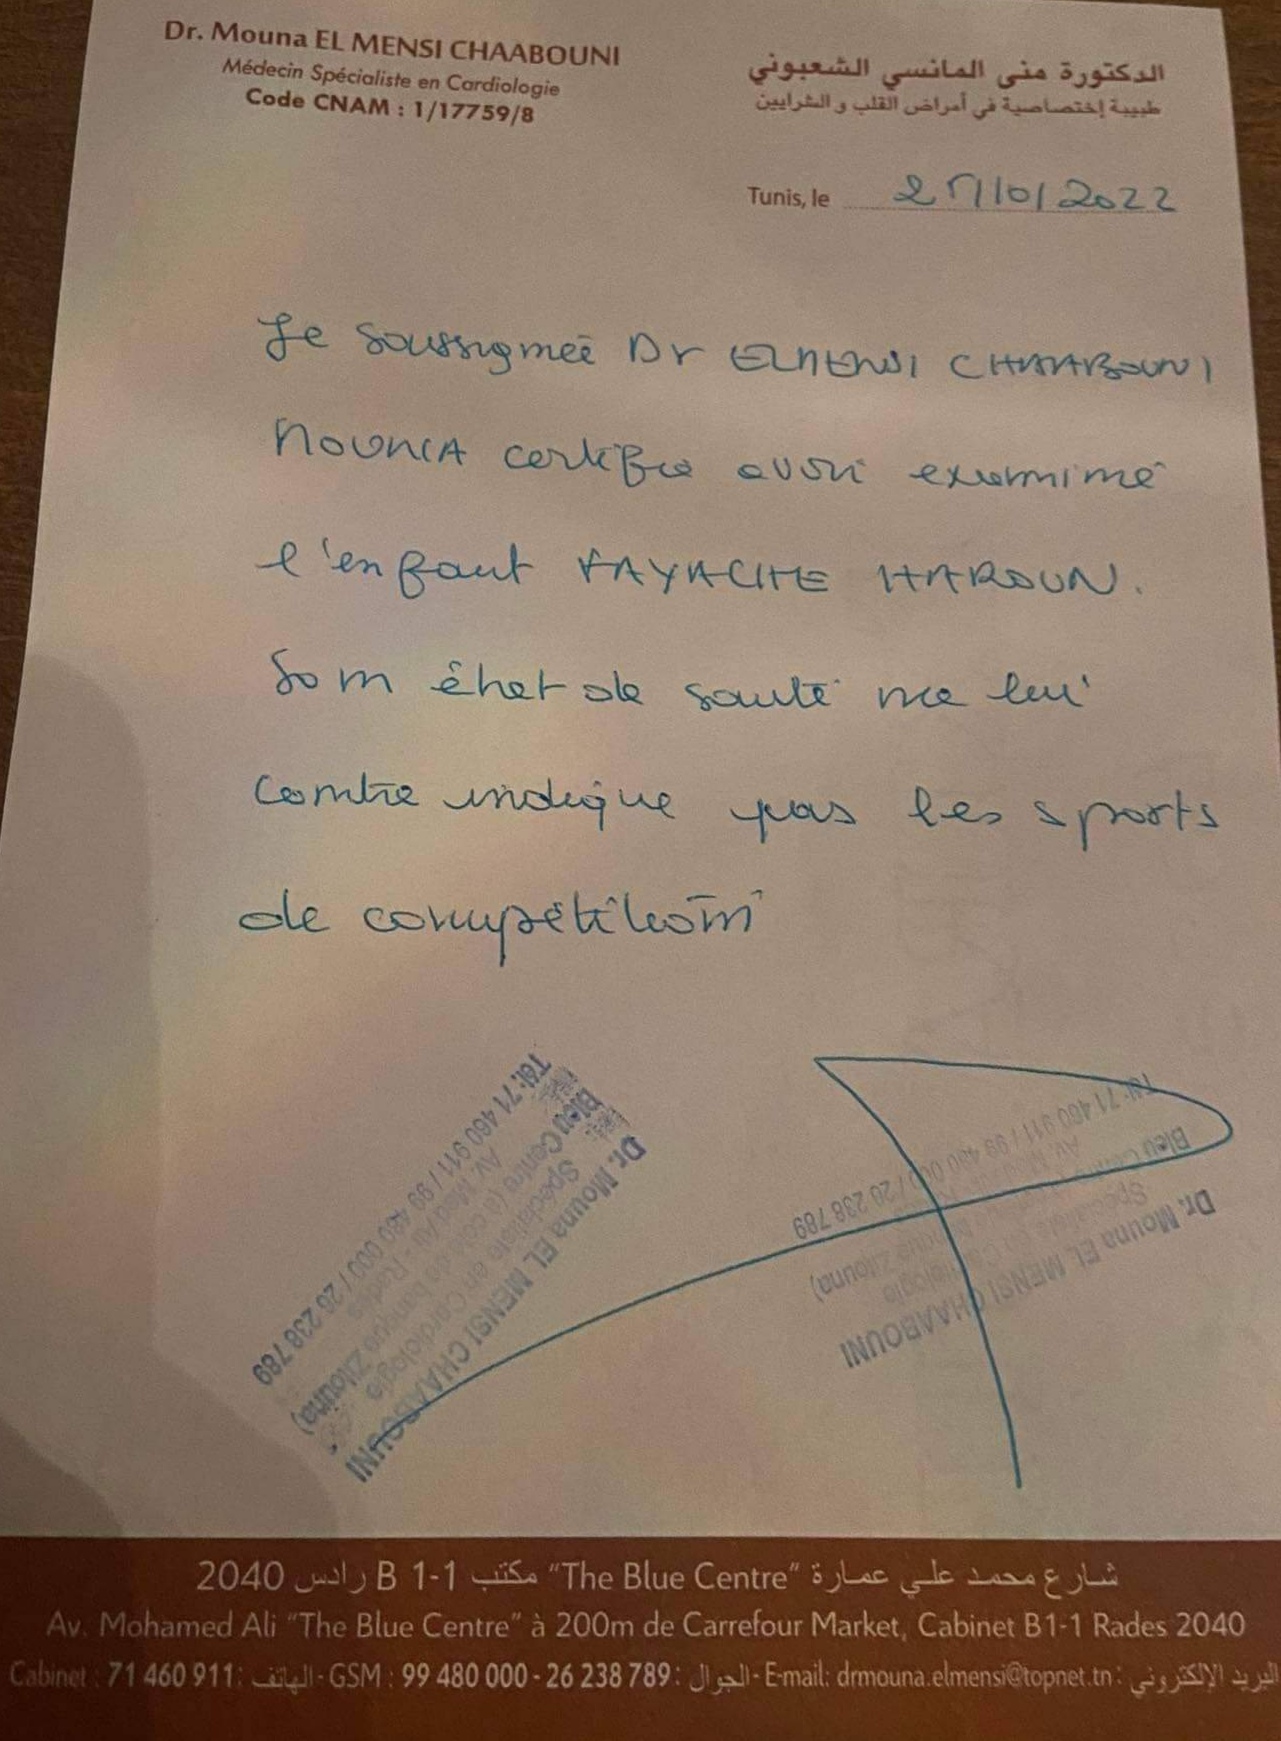 Dr. Mouna EL MENSI CHAABOUNI
Médecin Spécialiste en Cardiologie
Code CNAM : 1/17759/8
الدكتورة منى المانسي الشعبوني
طبيبة إختصاصية في أمراض القلب و الشرايين
Tunis, le
Je soussignée Dr ELMENSI CHAABOUNI
MOUNIA certifie avoir examiné
l'enfant FAYACHE HAROUN.
Son état de santé ne lui
contre indique pas les sports
de compétition
Dr. Mouna EL MENSI CHAABOUNI
Spécialiste en Cardiologie
Bleu Centre (à coté de banque Zitouna)
Av. Med Ali - Radès
Tél: 71 460 911 / 99 480 000 / 26 238 789
Dr. Mouna EL MENSI CHAABOUNI
Tél: 71 460 911 / 99 480 000 / 26 238 789
شارع محمد علي عمارة "The Blue Centre" مكتب B 1-1 رادس 2040
Av. Mohamed Ali "The Blue Centre" à 200m de Carrefour Market, Cabinet B1-1 Rades 2040
Cabinet : 71 460 911 : الهاتف - GSM : 99 480 000 - 26 238 789 : الجوال - E-mail: drmouna.elmensi@topnet.tn : البريد الإلكتروني